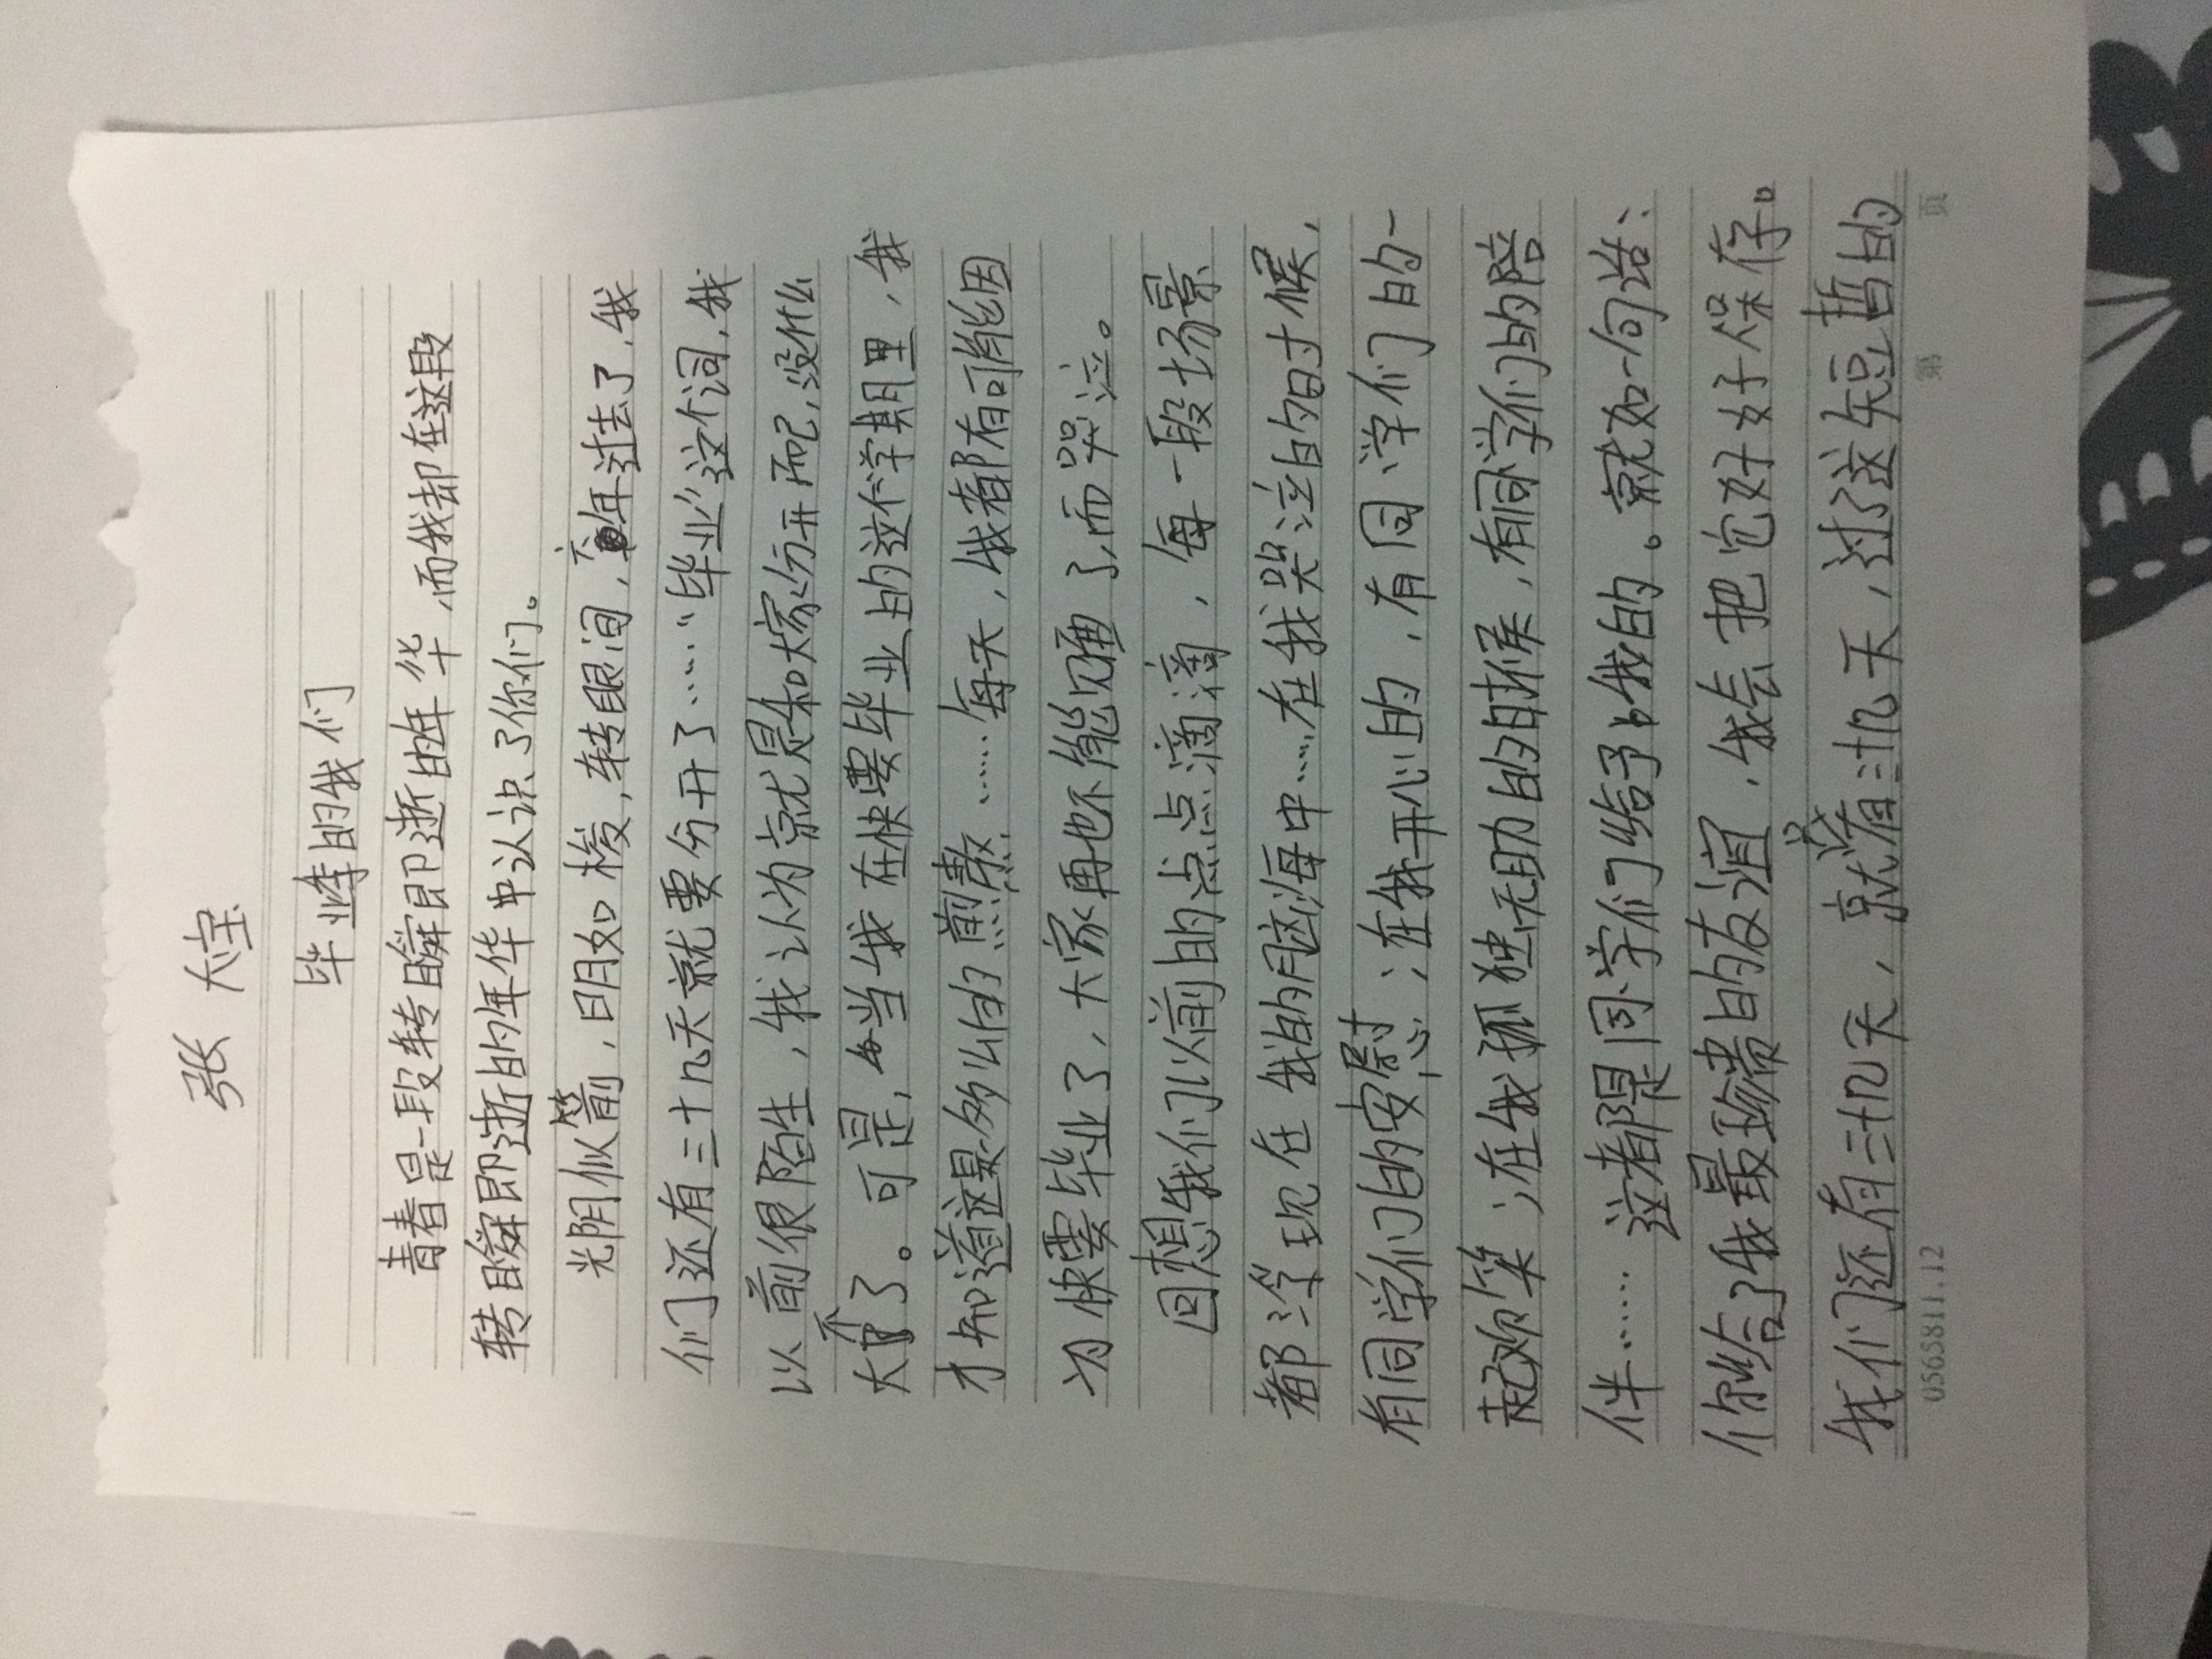 张大宝
毕业季的我们
青春是一段转瞬即逝的年华,而我却在这段
转瞬即逝的年华中认识了你们。
光阴似箭,日月如梭,转眼间,六年过去了,我
们还有三十几天就要分开了……“毕业”这个词,我
以前很陌生,我认为就是和大家分开而已,没什么
大不了。可是,当我在快要毕业的这个学期里,我
才知道这是多么的煎熬……每天,我都有可能因
为快要毕业了,大家再也不能见面了,而哭泣。
回想我们以前的点点滴滴,每一段场景
都浮现在我的脑海中……在我哭泣的时候,
有同学们的安慰;在我开心的,有同学们的一
起欢笑;在我孤独无助的时候,有同学们的陪
伴……这都是同学们给予我的。就如一句话:
你给了我最珍贵的友谊,我会把它好好保存。
我们还有三十几天,就差三十几天,过了这短暂的
0565811.12 第 页